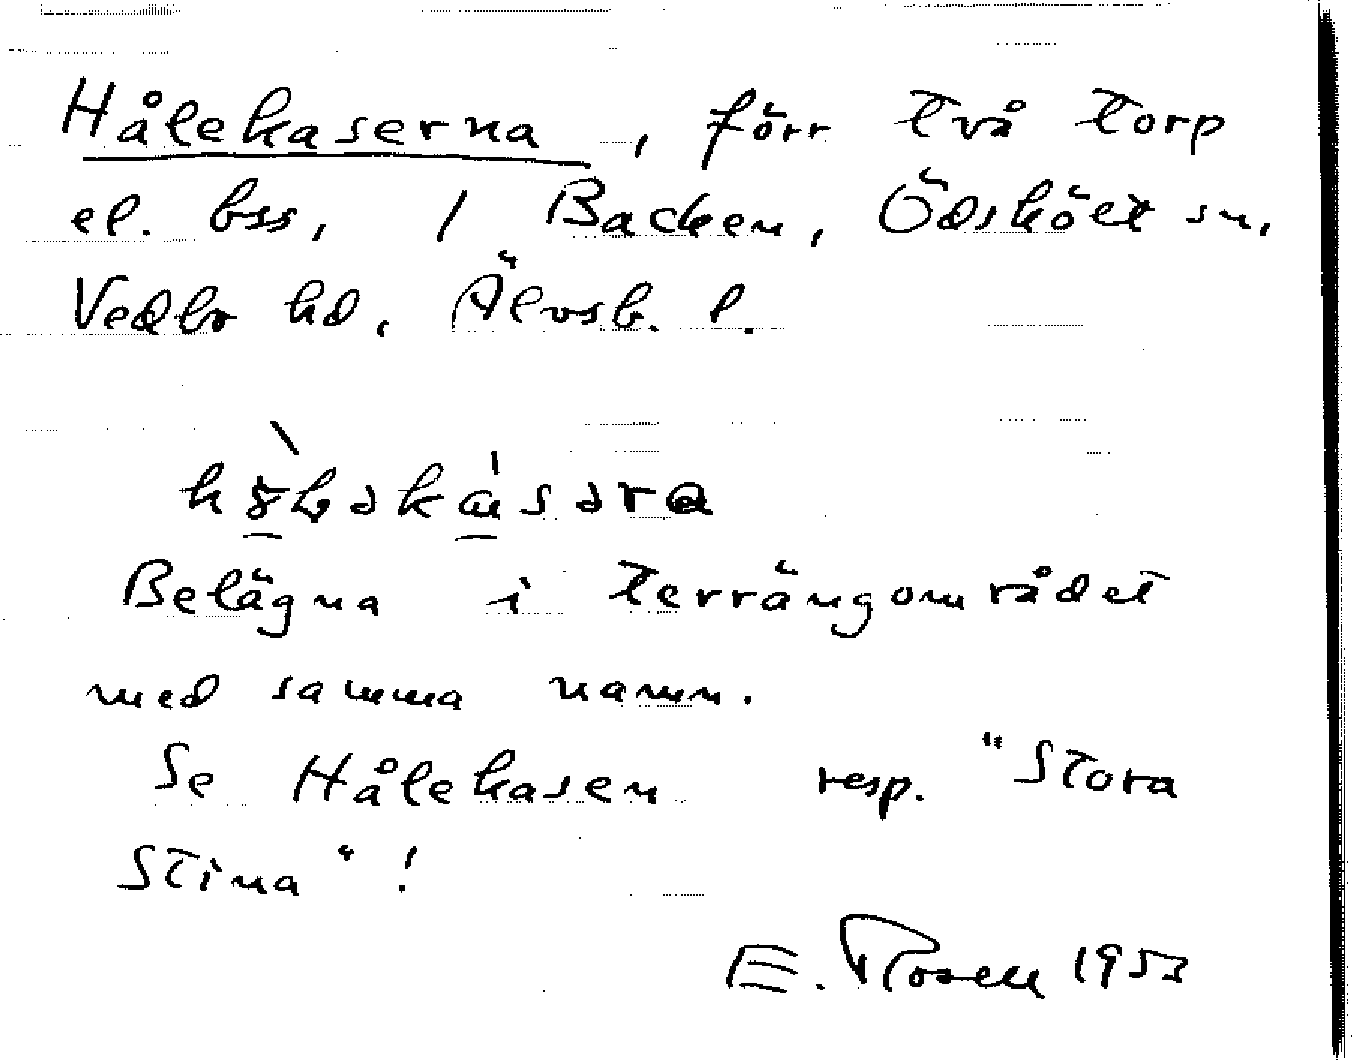 Hålekaserna, förr två torp
el. bss, / Backen, Ödsköet sn,
Vedbo hd, Älvsb. l.
Belägna i terrängområdet
med samma namn.
Se Hålekasen resp. "Stora
Stina"!
E. Rosell 1953